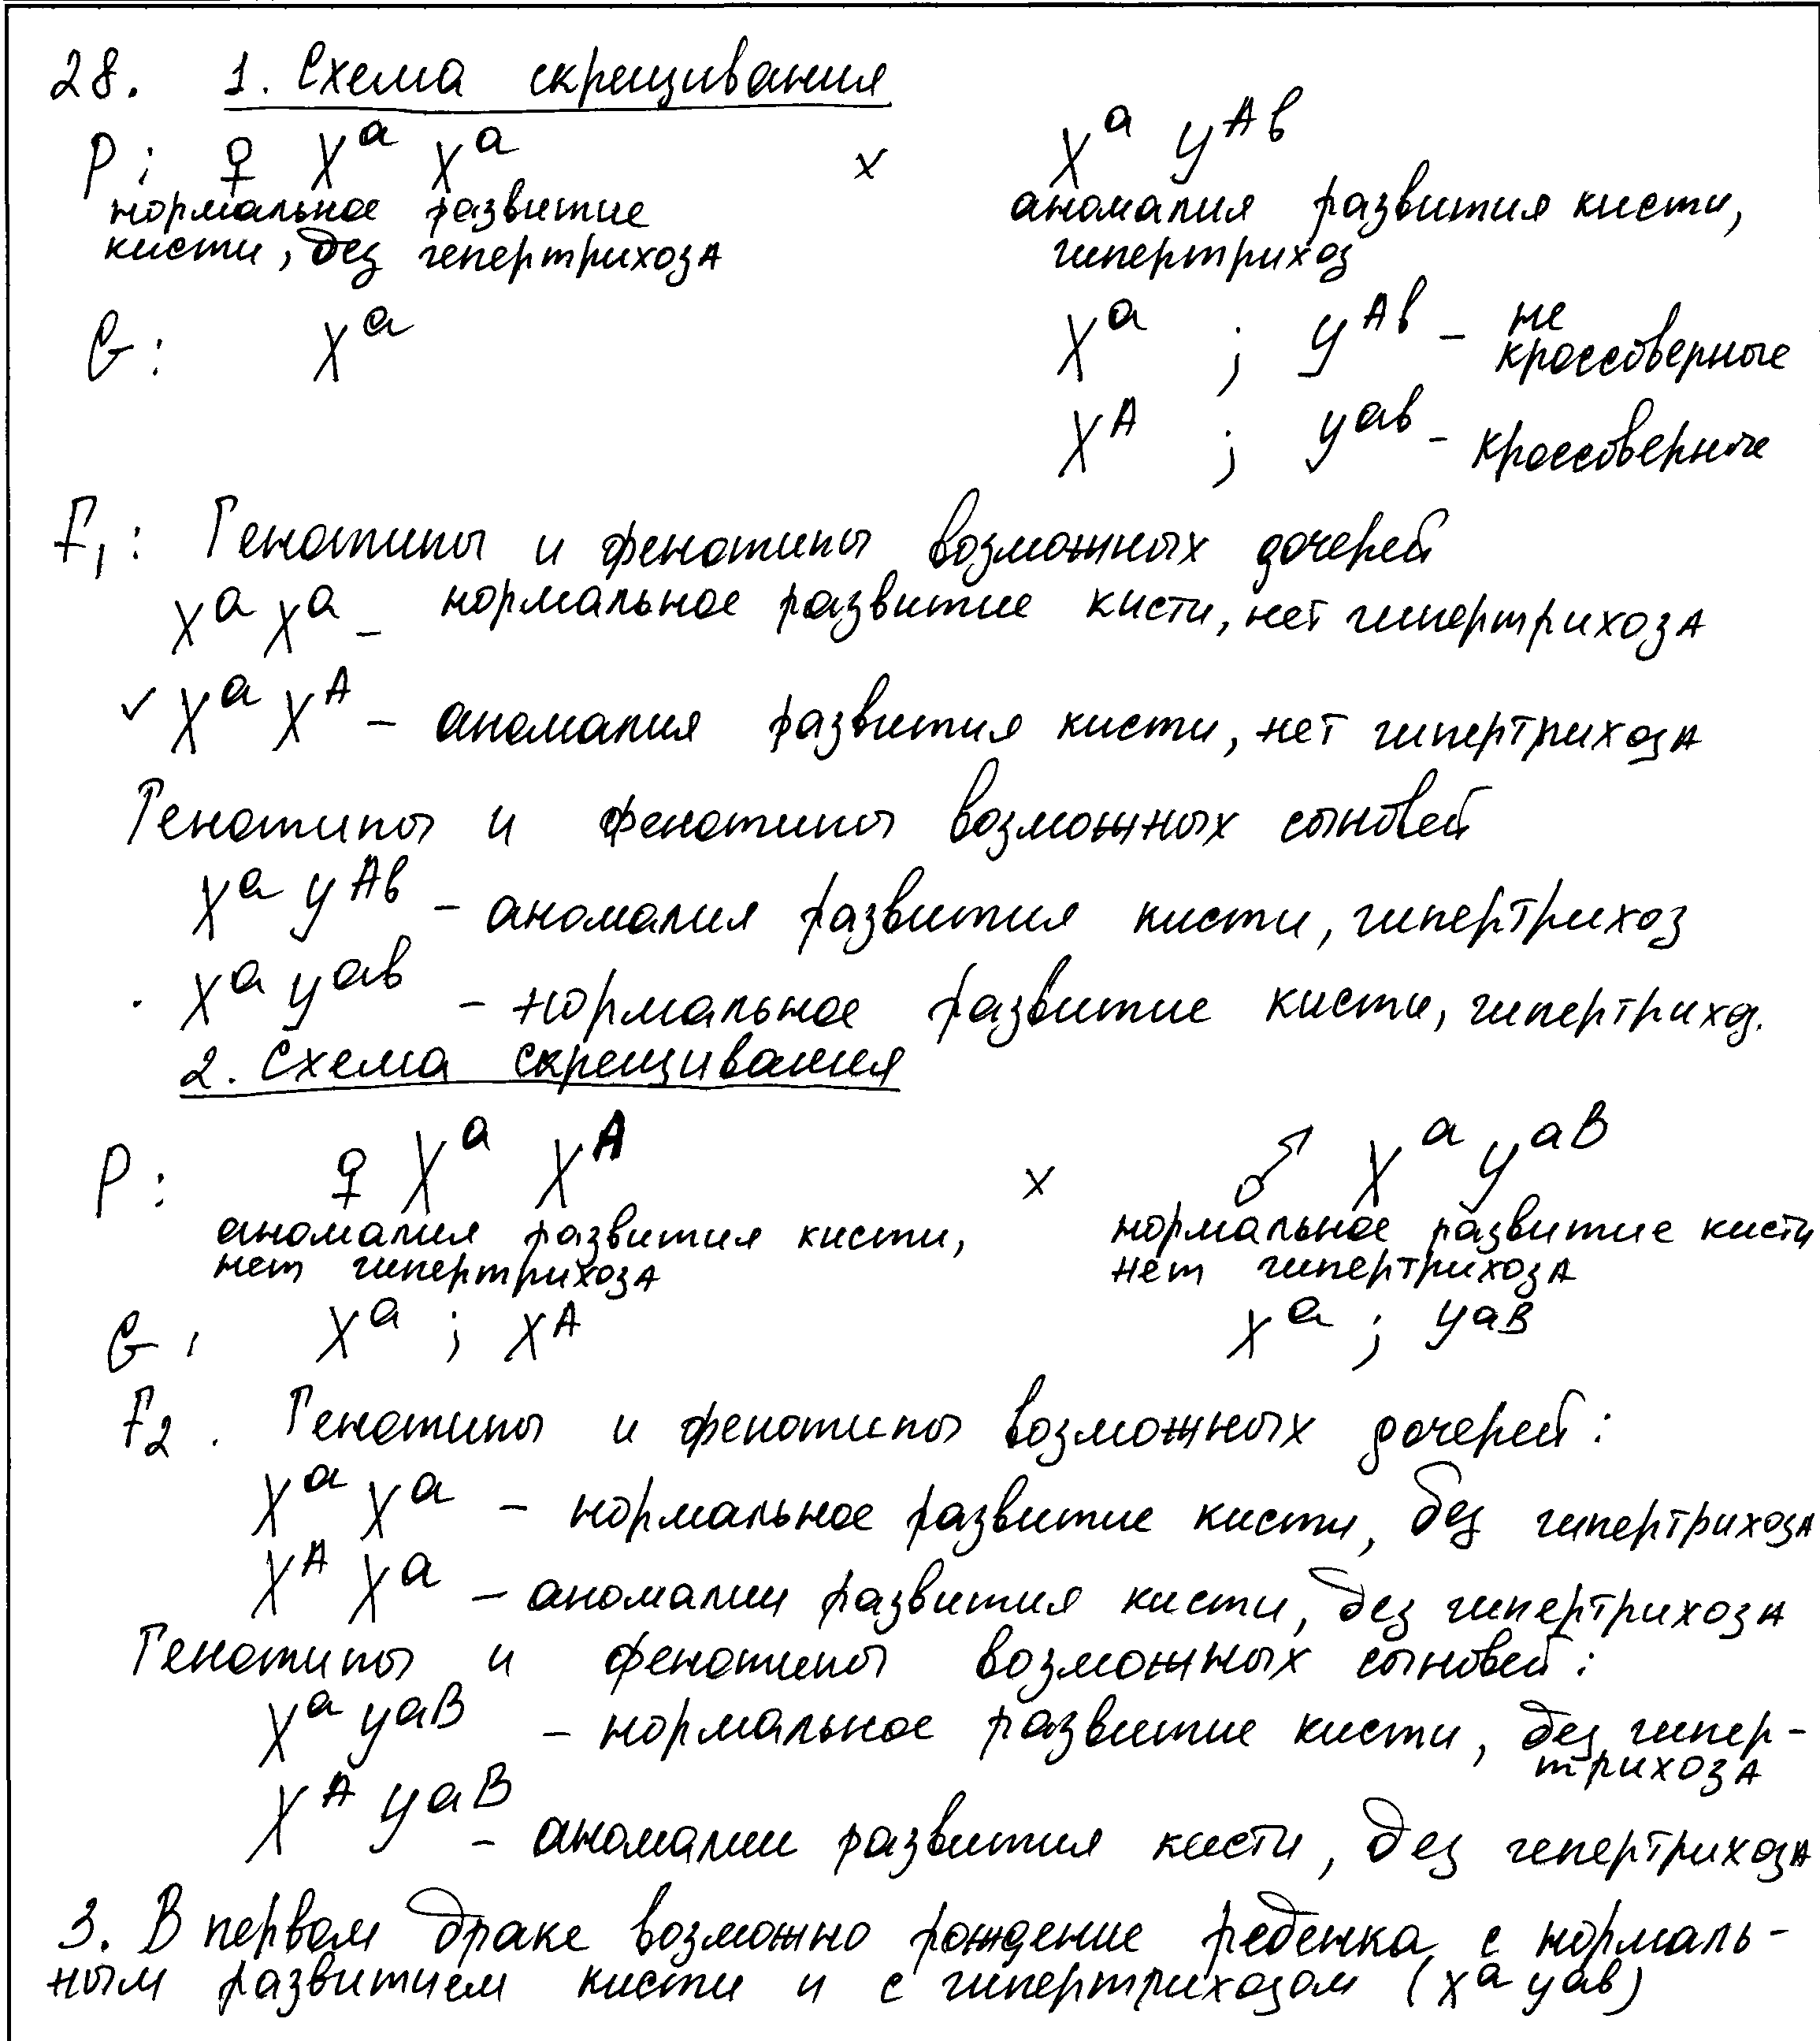 28. 1. Схема скрещивания
P: ♀ Xᵃ Xᵃ x Xᵃ Yᴬᵇ
нормальное развитие аномалия развития кисти,
кисти, без гепертрихоза гипертрихоз
G: Xᵃ Xᵃ ; Yᴬᵇ – не
кроссоверные
Xᴬ ; Yᵃᵇ – кроссоверные
F₁: Генотипы и фенотипы возможных дочерей
Xᵃ Xᵃ – нормальное развитие кисти, нет гипертрихоза
✓ Xᵃ Xᴬ – аномалия развития кисти, нет гипертрихоза
Генотипы и фенотипы возможных сыновей
Xᵃ Yᴬᵇ – аномалия развития кисти, гипертрихоз
· Xᵃ Yᵃᵇ – нормальное развитие кисти, гипертрихоз.
2. Схема скрещивания
P: ♀ Xᵃ Xᴬ x ♂ Xᵃ Yᵃᴮ
аномалия развития кисти, нормальное развитие кисти
нет гипертрихоза нет гипертрихоза
G: Xᵃ ; Xᴬ Xᵃ ; Yᵃᴮ
F₂. Генотипы и фенотипы возможных дочерей:
Xᵃ Xᵃ – нормальное развитие кисти, без гипертрихоза
Xᴬ Xᵃ – аномалии развития кисти, без гипертрихоза
Генотипы и фенотипы возможных сыновей:
Xᵃ Yᵃᴮ – нормальное развитие кисти, без гипер-
трихоза
Xᴬ Yᵃᴮ – аномалии развития кисти, без гепертрихоза
3. В первом браке возможно рождение ребенка с нормаль-
ным развитием кисти и с гипертрихозом (Xᵃ Yᵃᵇ)